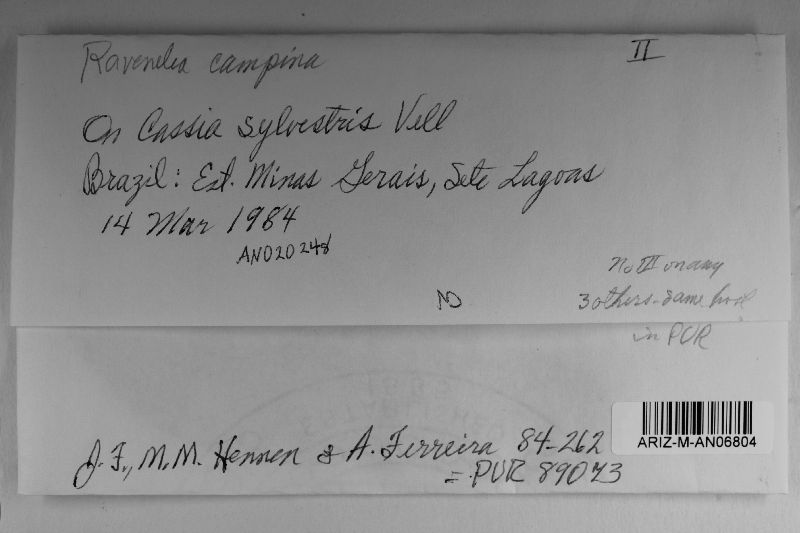 Ravenelia campina
II
On Cassia sylvestris Vell
Brazil: Est. Minas Gerais, Sete Lagoas
14 Mar 1984
AN020248
No III on any
3 others - same host
in PUR
J. F., M. M. Hennen & A. Ferreira 84-262
= PUR 89073
ARIZ-M-AN06804